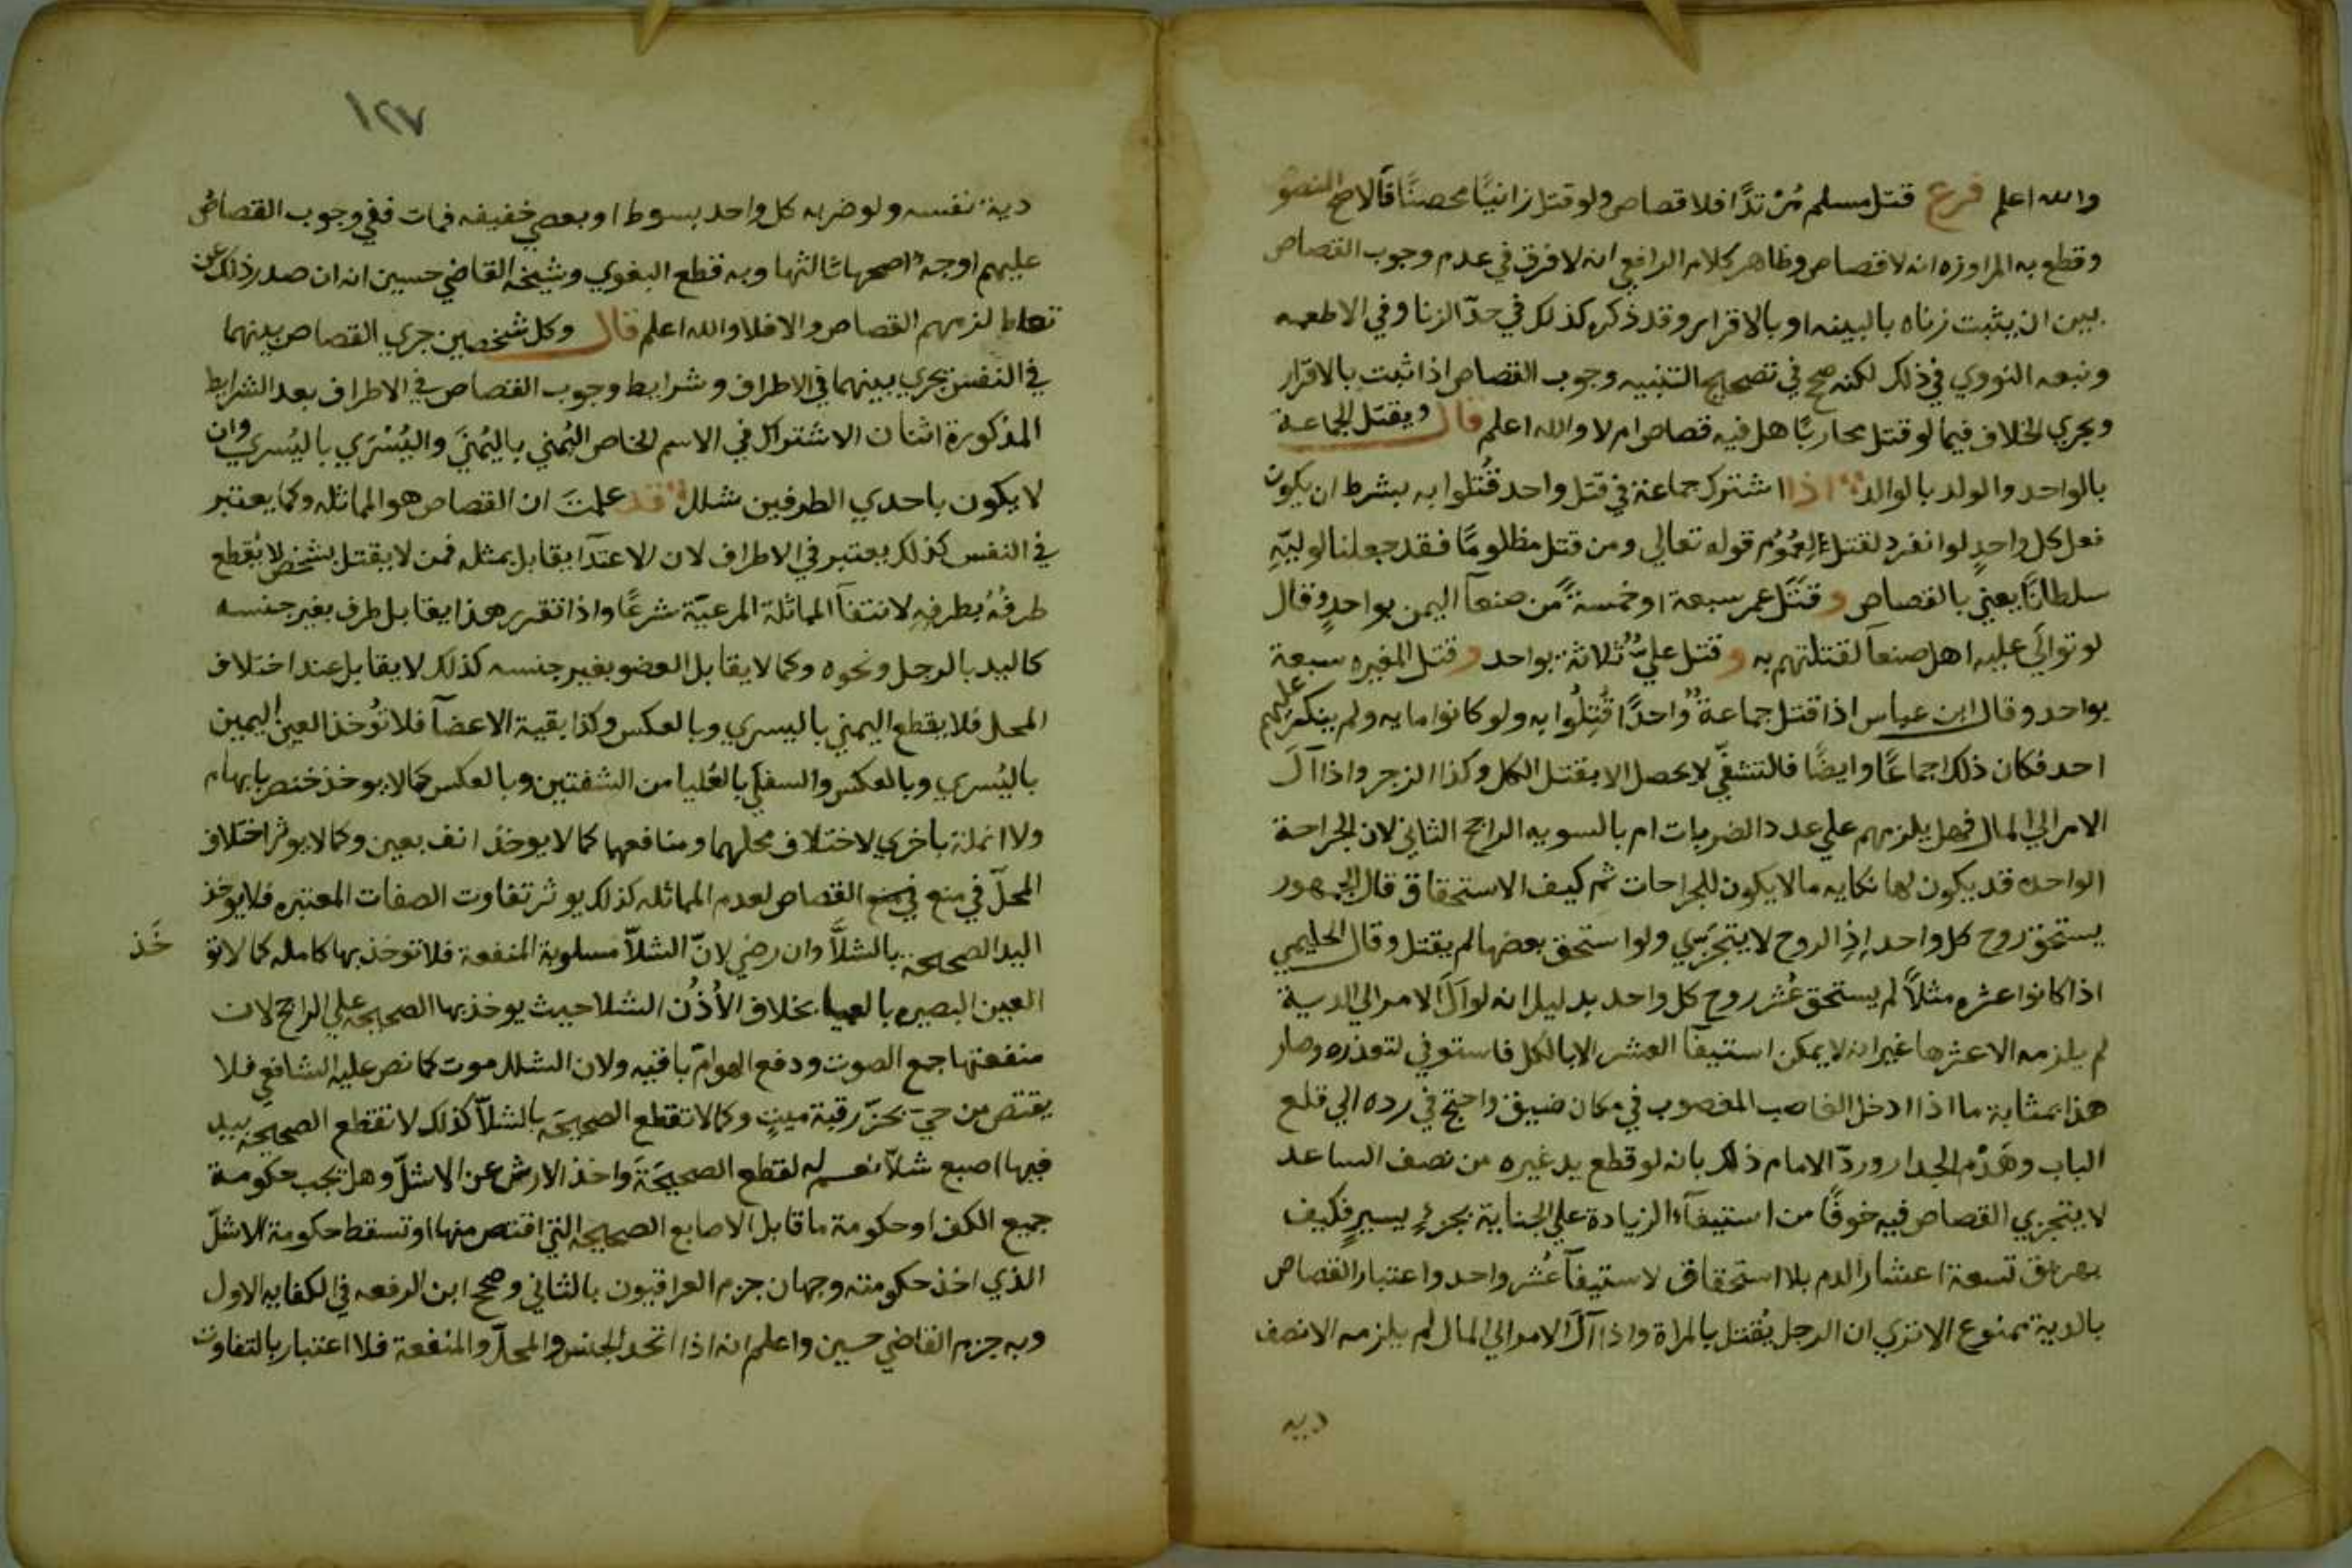 والله اعلم فرع قتل مسلم مُرْتدًّا فلا قصاص ولو قتل زانيًا محصنًا فالاصح المنصو
وقطع به المراوزه انه لا قصاص وظاهر كلام الرافعي انه لا فرق في عدم وجوب القصاص
بين ان يثبت زناه بالبينه او بالاقرار وقد ذكر كذلك في حدّ الزنا وفي الاطعمه
وتبعه النووي في ذلك لكنه صحح في تصحيح التنبيه وجوب القصاص اذا ثبت بالاقرار
ويجري الخلاف فيما لو قتل محاربًا هل فيه قصاص ام لا والله اعلم قال ويقتل الجماعة
بالواحد والولد بالوالد اذا اشترك جماعة في قتل واحد قُتلوا به بشرط ان يكون
فعل كل واحدٍ لو انفرد لقتل لِعُمُوُم قوله تعالي ومن قتل مظلومًا فقد جعلنا لوليّهِ
سلطانًا يعني بالقصاص وقَتَل عمر سبعة او خمسةً من صنعآ اليمن بواحدٍ وقال
لو توالَي عليه اهل صنعا لقتلتهم به وقتل عليٌّ ثلاثة بواحد وقتل المغيره سبعة
بواحد وقال ابن عباس اذا قتل جماعةٌ واحدًا قُتِلُوا به ولو كانوا مايه ولم ينكر عليهم
احد فكان ذلك اجماعًا وايضًا فالتشفّي لا يحصل الا بقتل الكل وكذا الزجر واذا آلَ
الامر الي المال فهل يلزمهم علي عدد الضربات ام بالسويه الراجح الثاني لان الجراحة
الواحده قد يكون لها نكايه ما لا يكون للجراحات ثم كيف الاستحقاق قال الجمهور
يستحق روح كل واحد اِذِ الروح لا يتجزي ولو استحق بعضها لم يقتل وقال الحليمي
اذا كانوا عشره مثلاً لم يستحق عُشر روح كل واحد بدليل انه لو آلَ الامر الي الدية
لم يلزمه الا عشرها غير انه لا يمكن استيفآ العشر الا بالكل فاستوفي لتعذره وصار
هذا بمثابة ما اذا ادخل الغاصب المغصوب في مكان ضيق واحتج في رده الي قلع
الباب وهَدْم الجدار وردّ الامام ذلك بانه لو قطع يد غيره من نصف الساعد
لا يتجزي القصاص فيه خوفًا من استيفآء الزيادة علي الجناية بجزءٍ يسيرٍ فكيف
يهراق تسعة اعشار الدم بلا استحقاق لاستيفآ عُشر واحد واعتبار القصاص
بالدية ممنوع الا تري ان الرجل يُقتل بالمراة واذا آلَ الامر الي المال لم يلزمه الا نصف
ديه
١٢٧
دية نفسه ولو ضربه كل واحد بسوط او بعصي خفيفه فمات ففي وجوب القصاص
عليهم اوجهٌ اصحها ثالثها وبه قطع البغوي وشيخه القاضي حسين انه ان صدر ذلك عن
تواط لزمهم القصاص والا فلا والله اعلم قال وكل شخصين جري القصاص بينهما
في النفس يجري بينهما في الاطراف وشرايط وجوب القصاص في الاطراف بعد الشرايط
المذكورة اثنان الاشتراك في الاسم الخاص اليُمني باليُمنَي واليُسْرَي باليُسري وان
لا يكون باحدي الطرفين شلل قد علمتَ ان القصاص هو المماثله وكما يعتبر
في النفس كذلك يعتبر في الاطراف لان الاعتدا يقابل بمثله فمن لا يقتل بشخص لا يُقطع
طرفُهُ بطرفِهِ لانتفآ المماثلة المرعيّة شرعًا واذا تقرر هذا يقابل طرف بغير جنسه
كاليد بالرجل ونحوه وكما لا يقابل العضو بغير جنسه كذلك لا يقابل عند اختلاف
المحل فلا يقطع اليمني باليسري وبالعكس وكذا بقية الاعضآ فلا تُوخذ العين اليمين
باليُسري وبالعكس والسفلي بالعُليا من الشفتين وبالعكس كما لا يوخذ خنصر بابهام
ولا انملة باخري لاختلاف محلهما ومنافعها كما لا يوخذ انف بعين وكما لا يوثر اختلاف
المحلّ في منع القصاص لعدم المماثله كذلك يوثر تفاوت الصفات المعتبره فلا يوخذ
اليد الصحيحة بالشلاَّ وان رضي لانّ الشلاّ مسلوبة المنفعة فلا توخذ بها كامله كما لا تو خَذ
العين البصيره بالعميا بخلاف الأذُن الشلا حيث يوخذ بها الصحيحه علي الراجح لان
منفعتها جمع الصوت ودفع الهوامّ باقيه ولان الشلل موت كما نص عليه الشافعي فلا
يقتص من حيّ بحزّ رقبة ميتٍ وكما لا تقطع الصحيحَة بالشلاّ كذلك لا تقطع الصحيحه بيد
فيها اصبع شلاّ نعم له لقطع الصحيحَة واخذ الارش عن الاشلّ وهل تجب حكومة
جميع الكف او حكومة ما قابل الاصابع الصحيحه التي اقتص منها او تسقط حكومة الاشلّ
الذي اخذ حكومته وجهان جزم العراقيون بالثاني وصحح ابن الرفعه في الكفايه الاول
وبه جزم القاضي حسين واعلم انه اذا اتحد الجنس والمحلّ والمنفعة فلا اعتبار بالتفاوت